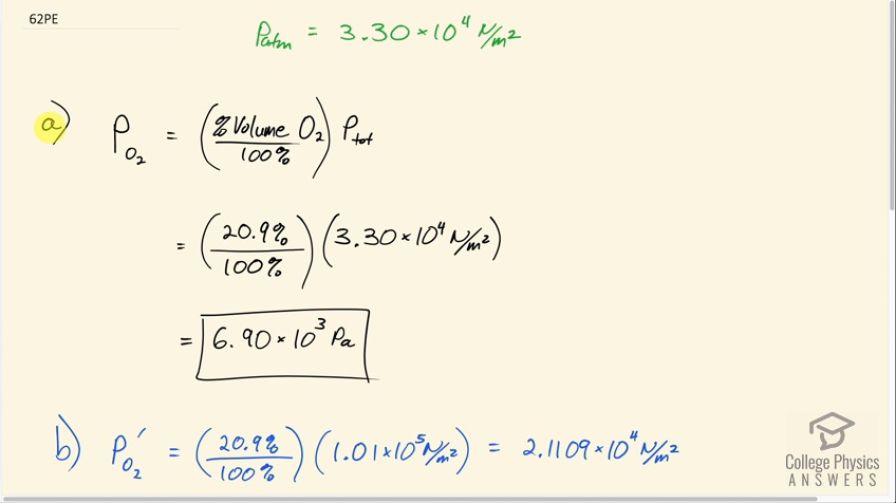 62PE
Patm = 3.30 × 10⁴ N/m²
a) P_O₂ = (% Volume O₂ / 100%) P_tot
= (20.9% / 100%) (3.30 × 10⁴ N/m²)
= 6.90 × 10³ Pa
b) P_O₂′ = (20.9% / 100%) (1.01 × 10⁵ N/m²) = 2.1109 × 10⁴ N/m²
College Physics
ANSWERS